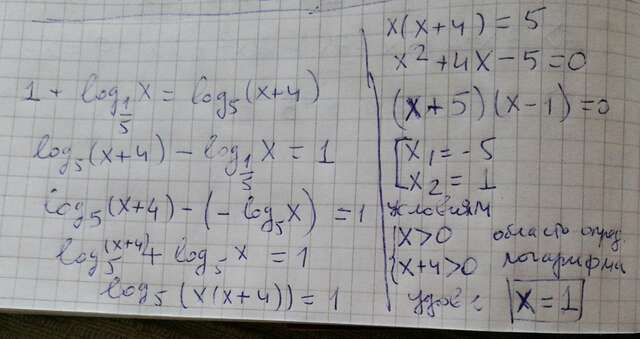 1 + log_{1/5} x = log_5 (x+4)
log_5 (x+4) - log_{1/5} x = 1
log_5 (x+4) - (-log_5 x) = 1
log_5^{(x+4)} + log_5 x = 1
log_5 (x(x+4)) = 1
x(x+4) = 5
x² + 4x - 5 = 0
(x+5)(x-1) = 0
[ x_1 = -5
x_2 = 1
условиям
{ x > 0 область опред.
x+4 > 0 логарифма
удовл. x = 1